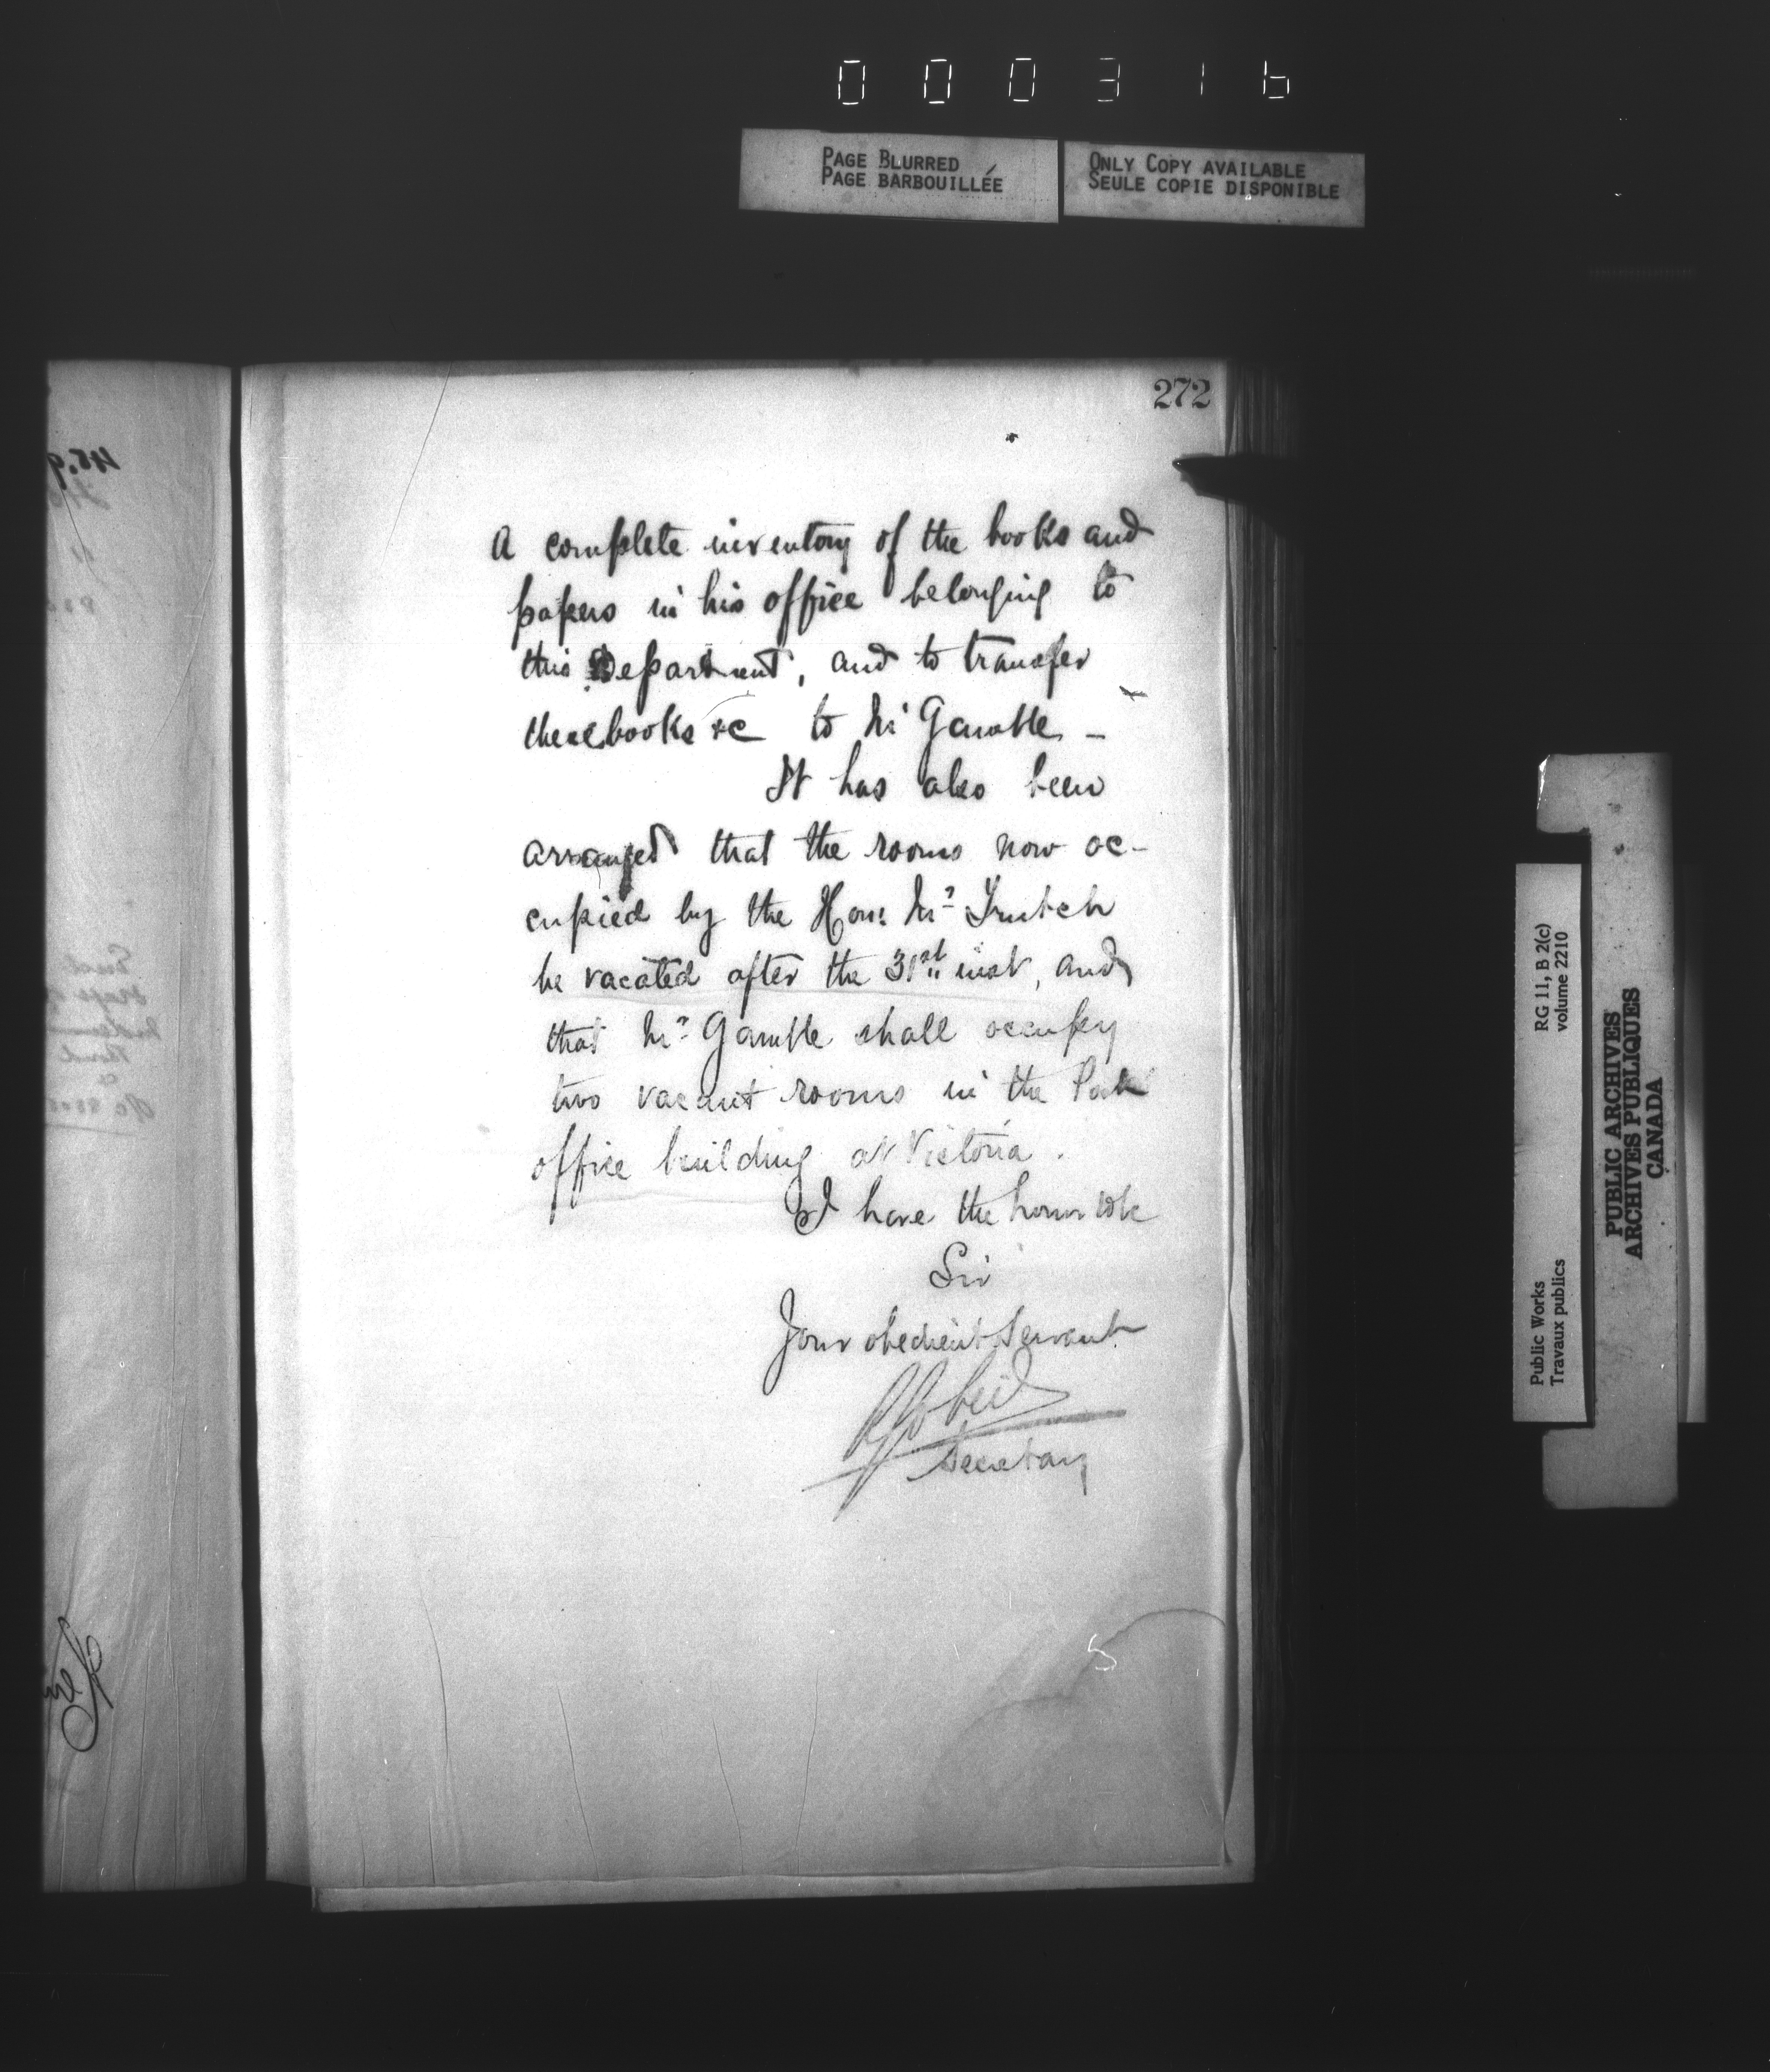 000316
PAGE BLURRED
PAGE BARBOUILLÉE
ONLY COPY AVAILABLE
SEULE COPIE DISPONIBLE
272
A complete inventory of the books and
papers in his office belonging to
this Department, and to transfer
these books &c to Mr Gamble –
It has also been
arranged that the rooms now oc-
cupied by the Hon: Mr Trutch
be vacated after the 31st inst, and
that Mr Gamble shall occupy
two vacant rooms in the Post
office building at Victoria.
I have the honor to be
Sir
Your obedient Servant
Secretary
5
RG 11, B 2(c)
volume 2210
Public Works
Travaux publics
PUBLIC ARCHIVES
ARCHIVES PUBLIQUES
CANADA